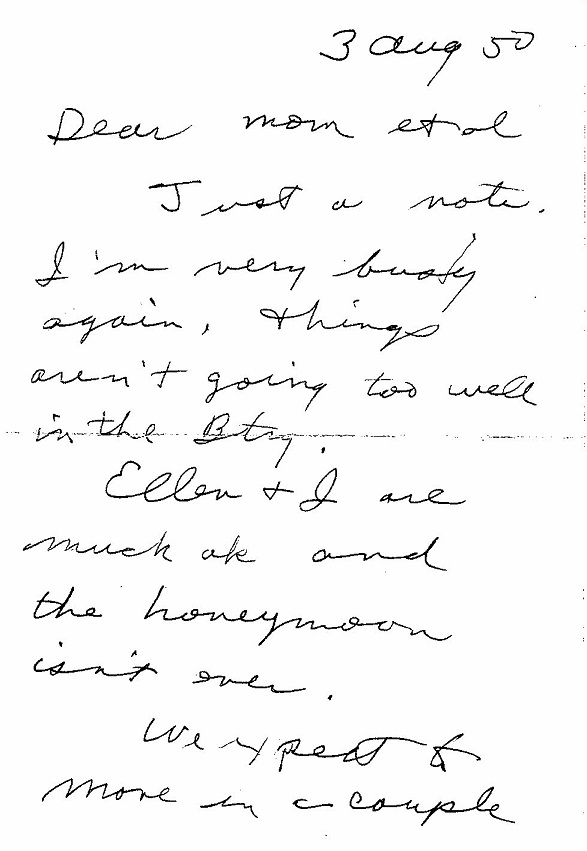 3 Aug 50
Dear Mom et al
Just a note.
I'm very busy
again, things
aren't going too well
in the Btry.
Ellen + I are
much ok and
the honeymoon
isn't over.
We expect to
move in a couple